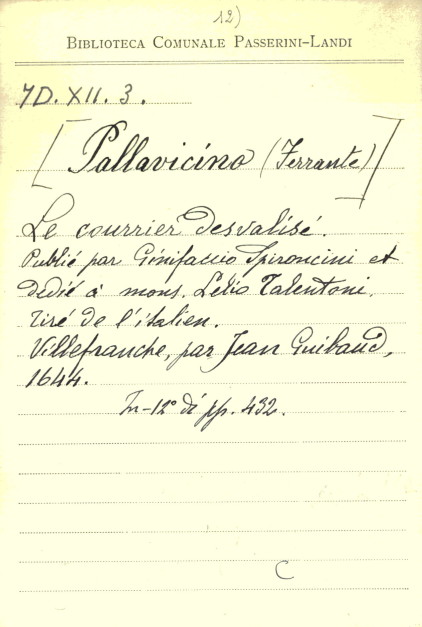 12)
BIBLIOTECA COMUNALE PASSERINI-LANDI
7D. XII. 3.
[Pallavicino (Ferrante)]
Le courrier desvalisé.
Publié par Ginifaccio Spironcini et
dedié à mons. Lelio Talentoni.
Tiré de l'italien.
Villefranche, par Jean Guibaud,
1644.
In-12° di pp. 432.
C